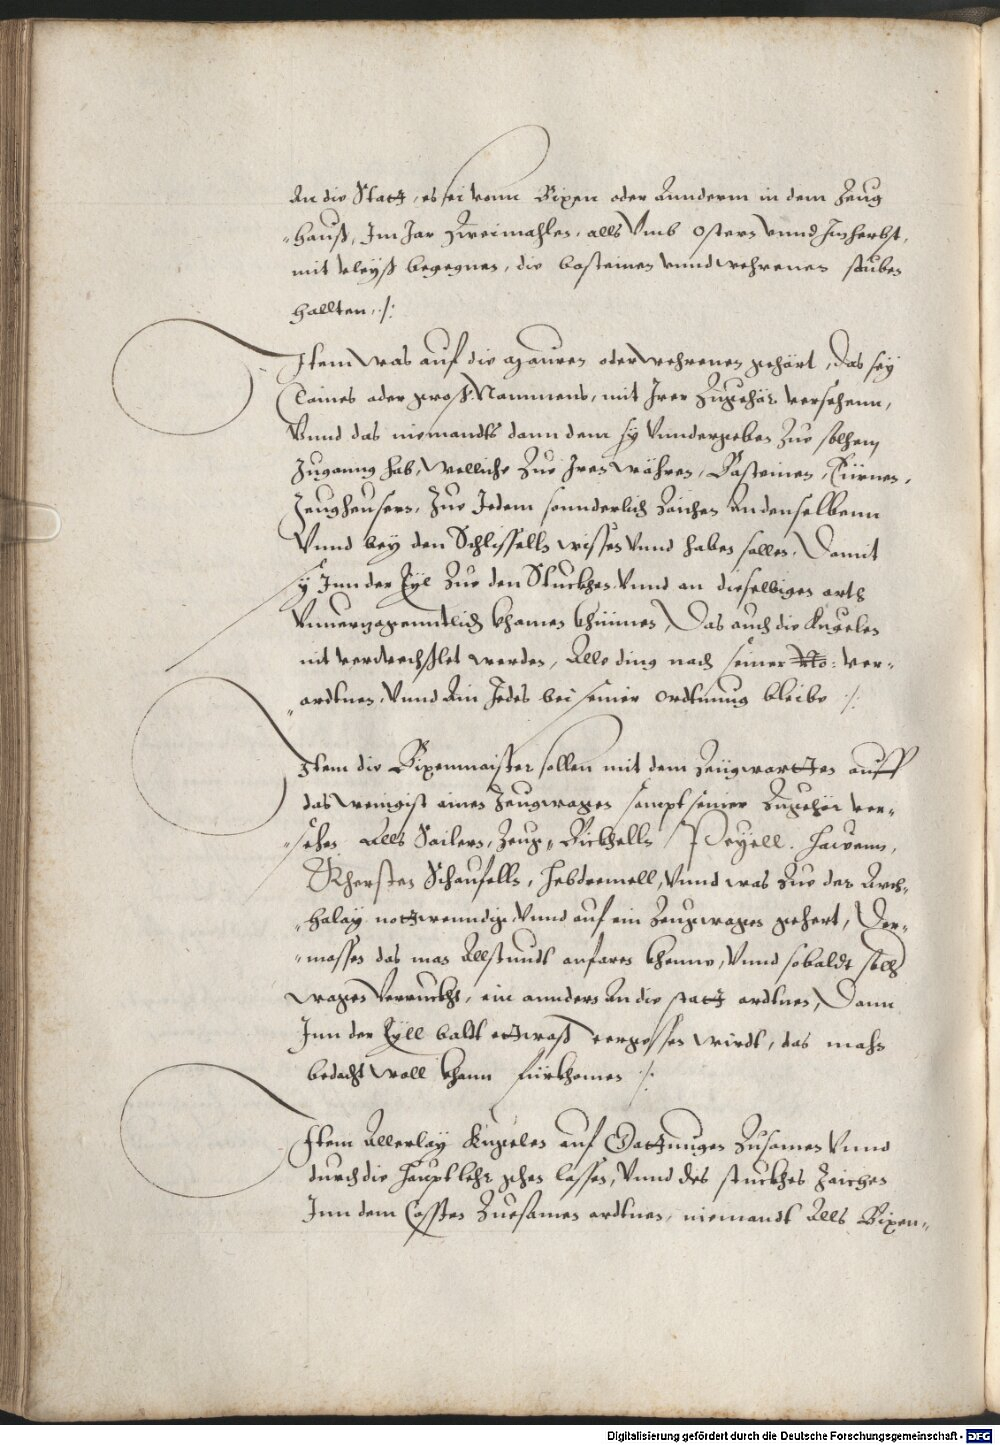 An die Statt, es sei vonn Bixen oder Annderm in dem Zeug
hauß, Im Jar Zweimahlen, alls Vmb Ostern vnnd Im herbst,
mit vleyß begegnen, die basteinen vnnd wehrenen sauber
hallten ./:
Item was auf die Mauren oder wehrenen gehört, Das sey
Clains oder groß Nammens, mit Irer Zugehör versehenn,
Vnnd das niemandts dann dem sy Vnndergeben Zue solhem
Zuganng hab, welliche Zue Iren währen, Basteinen, Türnen,
Zeugheusern, Zue Jedem sonnderlich Zaichen An denselbenn
Vnnd bey den Schlissells wissen Vnnd haben sollen, Damit
sy Inn der Eyl Zue den Stuckhen Vnnd an dieselbigen orth
Vnuerzogenntlich khomen khünnen, Das auch die Kugelen
nit verwechßlet werden, Alle ding nach seiner No: ver-
ordtnen, Vnnd Ain Jedes bei seiner ordtnung bleibe ./:
Item die Bixenmaister sollen mit dem Zeugwartten auff
das wenigist ainen Zeugwagen sampt seiner Zugehör ver-
sehen Alls Sailern, Zeug, Bickhells Peyell. Hawenn,
Khersten Schaufells, Hebtremell, Vnnd was Zue der Arch-
halay nottwenndig Vnnd auf ein Zeugwagen gehert, Der-
massen das man Allstundt anfaren khenne, Vnnd sobaldt solh
wagen Verruckht, ein annders An die statt ordtnen, Dann
Inn der Eyll baldt ettwaß vergessen wirdt, das mahn
bedacht woll khann fürkhomen ./:
Item Allerlay Kugelen auf Gattnungen Zusamen Vnnd
durch die Haupt lehr gehen lassen, Vnnd des stuckhes Zaichen
Inn dem Casten Zuesamen ordtnen, niemandt Alls Bixen-
Digitalisierung gefördert durch die Deutsche Forschungsgemeinschaft - DFG